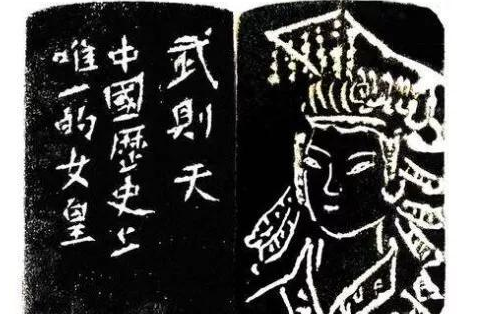 武則天
中國歷史上
唯一的女皇